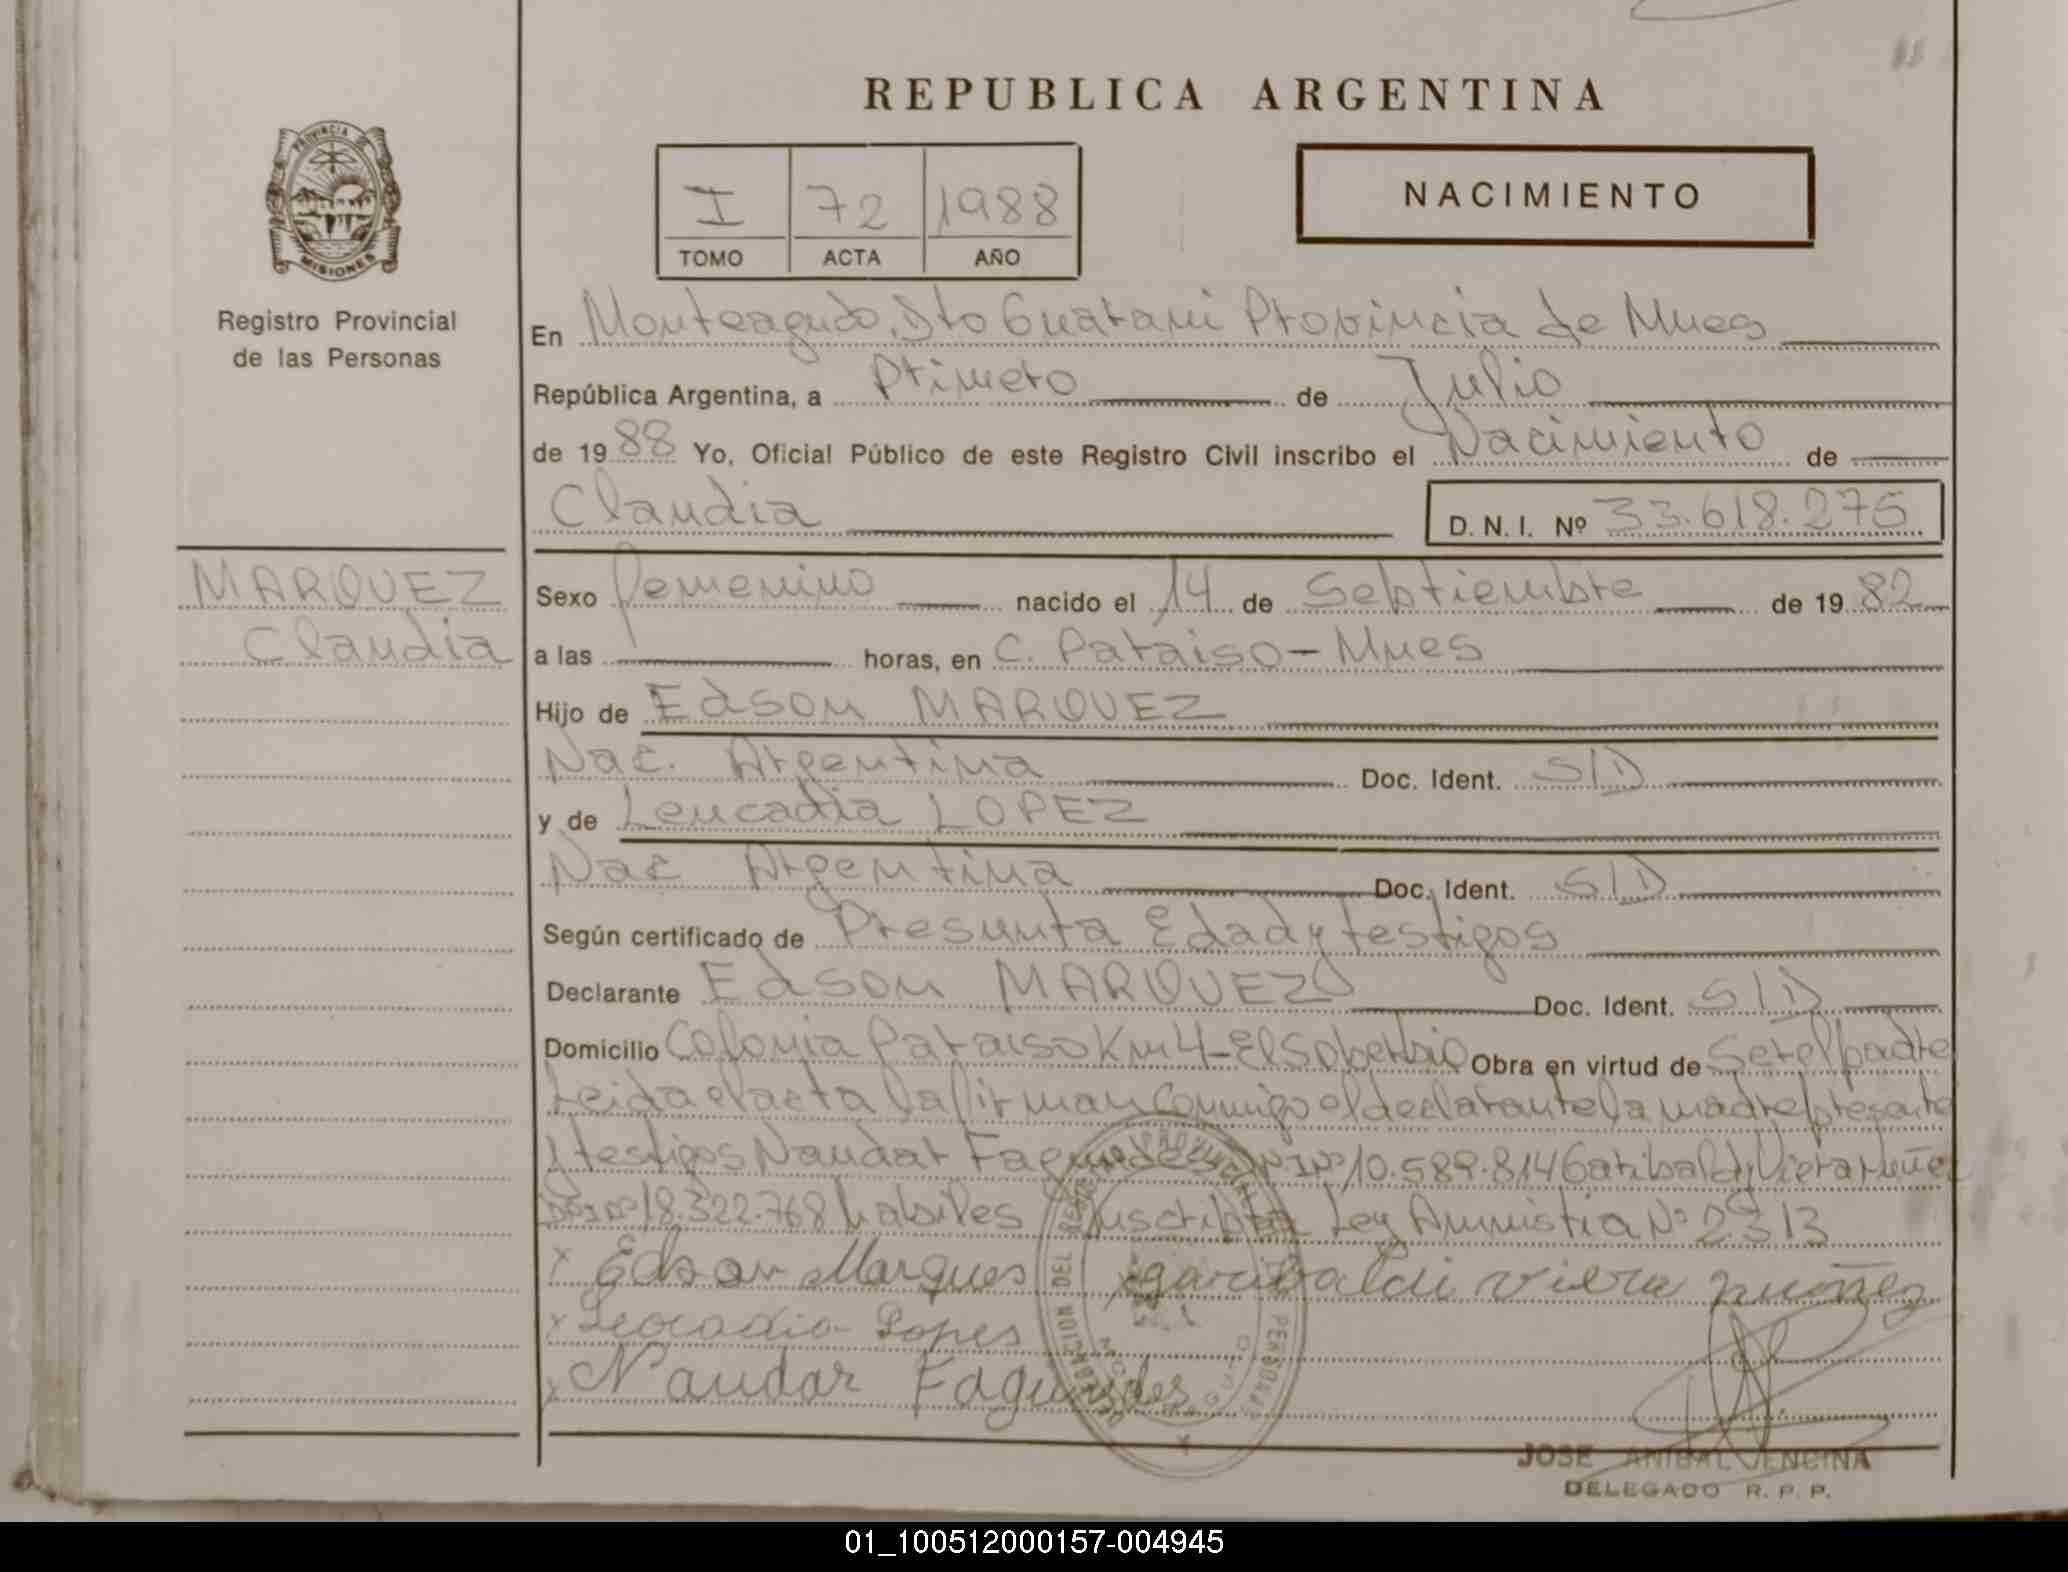 REPUBLICA ARGENTINA
PROVINCIA DE
MISIONES
Registro Provincial
de las Personas
I 72 1988
TOMO ACTA AÑO
NACIMIENTO
En Monteagudo, Dto Guarani Provincia de Mnes
República Argentina, a Primero de Julio
de 1988 Yo, Oficial Público de este Registro Civil inscribo el Nacimiento de
Claudia D. N. I. Nº 33.618.275
MARQUEZ
Claudia
Sexo femenino nacido el 14 de Septiembre de 1982
a las horas, en C. Paraiso - Mnes
Hijo de Edson MARQUEZ
Nac. Argentina Doc. Ident. S/D
y de Leucadia LOPEZ
Nac Argentina Doc. Ident. S/D
Según certificado de Presunta Edad y testigos
Declarante Edson MARQUEZ Doc. Ident. S/D
Domicilio Colonia Paraiso Km 4 - El Soberbio Obra en virtud de Ser el padre
Leida el acta la firman conmigo el declarante la madre presente
y testigos Naudar Fagundes Nº 10.589.814 Garibaldi Viera Nuñez
18.322.768 habiles Inscripta Ley Amnistia Nº 2313
x Edson Marques x garibaldi viera nuñez
x Leocadia Lopes
x Naudar Fagundes
JOSE ANIBAL ENCINA
DELEGADO R. P. P.
01_100512000157-004945